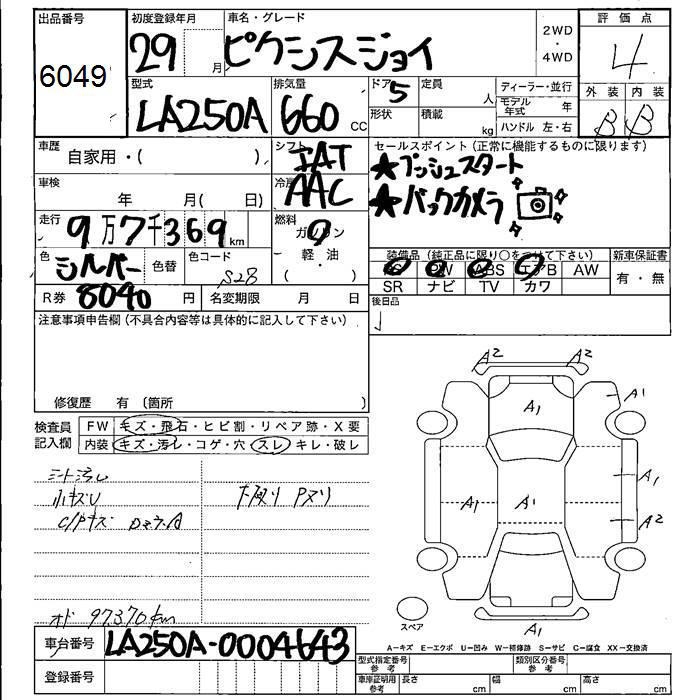 出品番号 初度登録年月 車名・グレード 2WD・4WD 評価点
6049 29 月 ピクシスジョイ 4
型式 排気量 ドア 定員 ディーラー・並行 外装 内装
LA250A 660 CC 5 人 モデル年式 年 B B
形状 積載 kg ハンドル 左・右
車歴 自家用・( ) シフト IAT セールスポイント (正常に機能するものに限ります)
★プッシュスタート
車検 年 月( 日) 冷房 AAC ★バックカメラ
走行 9万7千369km 燃料 ガソリン 軽・油 ( )
装備品 (純正品に限り○をつけて下さい) 新車保証書
色 シルバー 色替 色コード S28 PS PW ABS エアB AW 有・無
SR ナビ TV カワ
R券 8040 円 名変期限 月 日 後日品
注意事項申告欄 (不具合内容等は具体的に記入して下さい)
修復歴 有 〔箇所 〕
検査員記入欄 FW キズ・飛石・ヒビ割・リペア跡・X要
内装 キズ・汚れ・コゲ・穴・スレ・キレ・破レ
シート汚レ
小キズU 下廻り Pヌリ
オド 97370km
A2 A2
A1 A1
A1
A1 A1
A2
A1
スペア
A=キズ E=エクボ U=凹み W=補修跡 S=サビ C=腐食 XX=交換済
車台番号 LA250A-0004643
登録番号
型式指定番号 参考 類別区分番号 参考
車庫証明用 参考 長さ cm 幅 cm 高さ cm